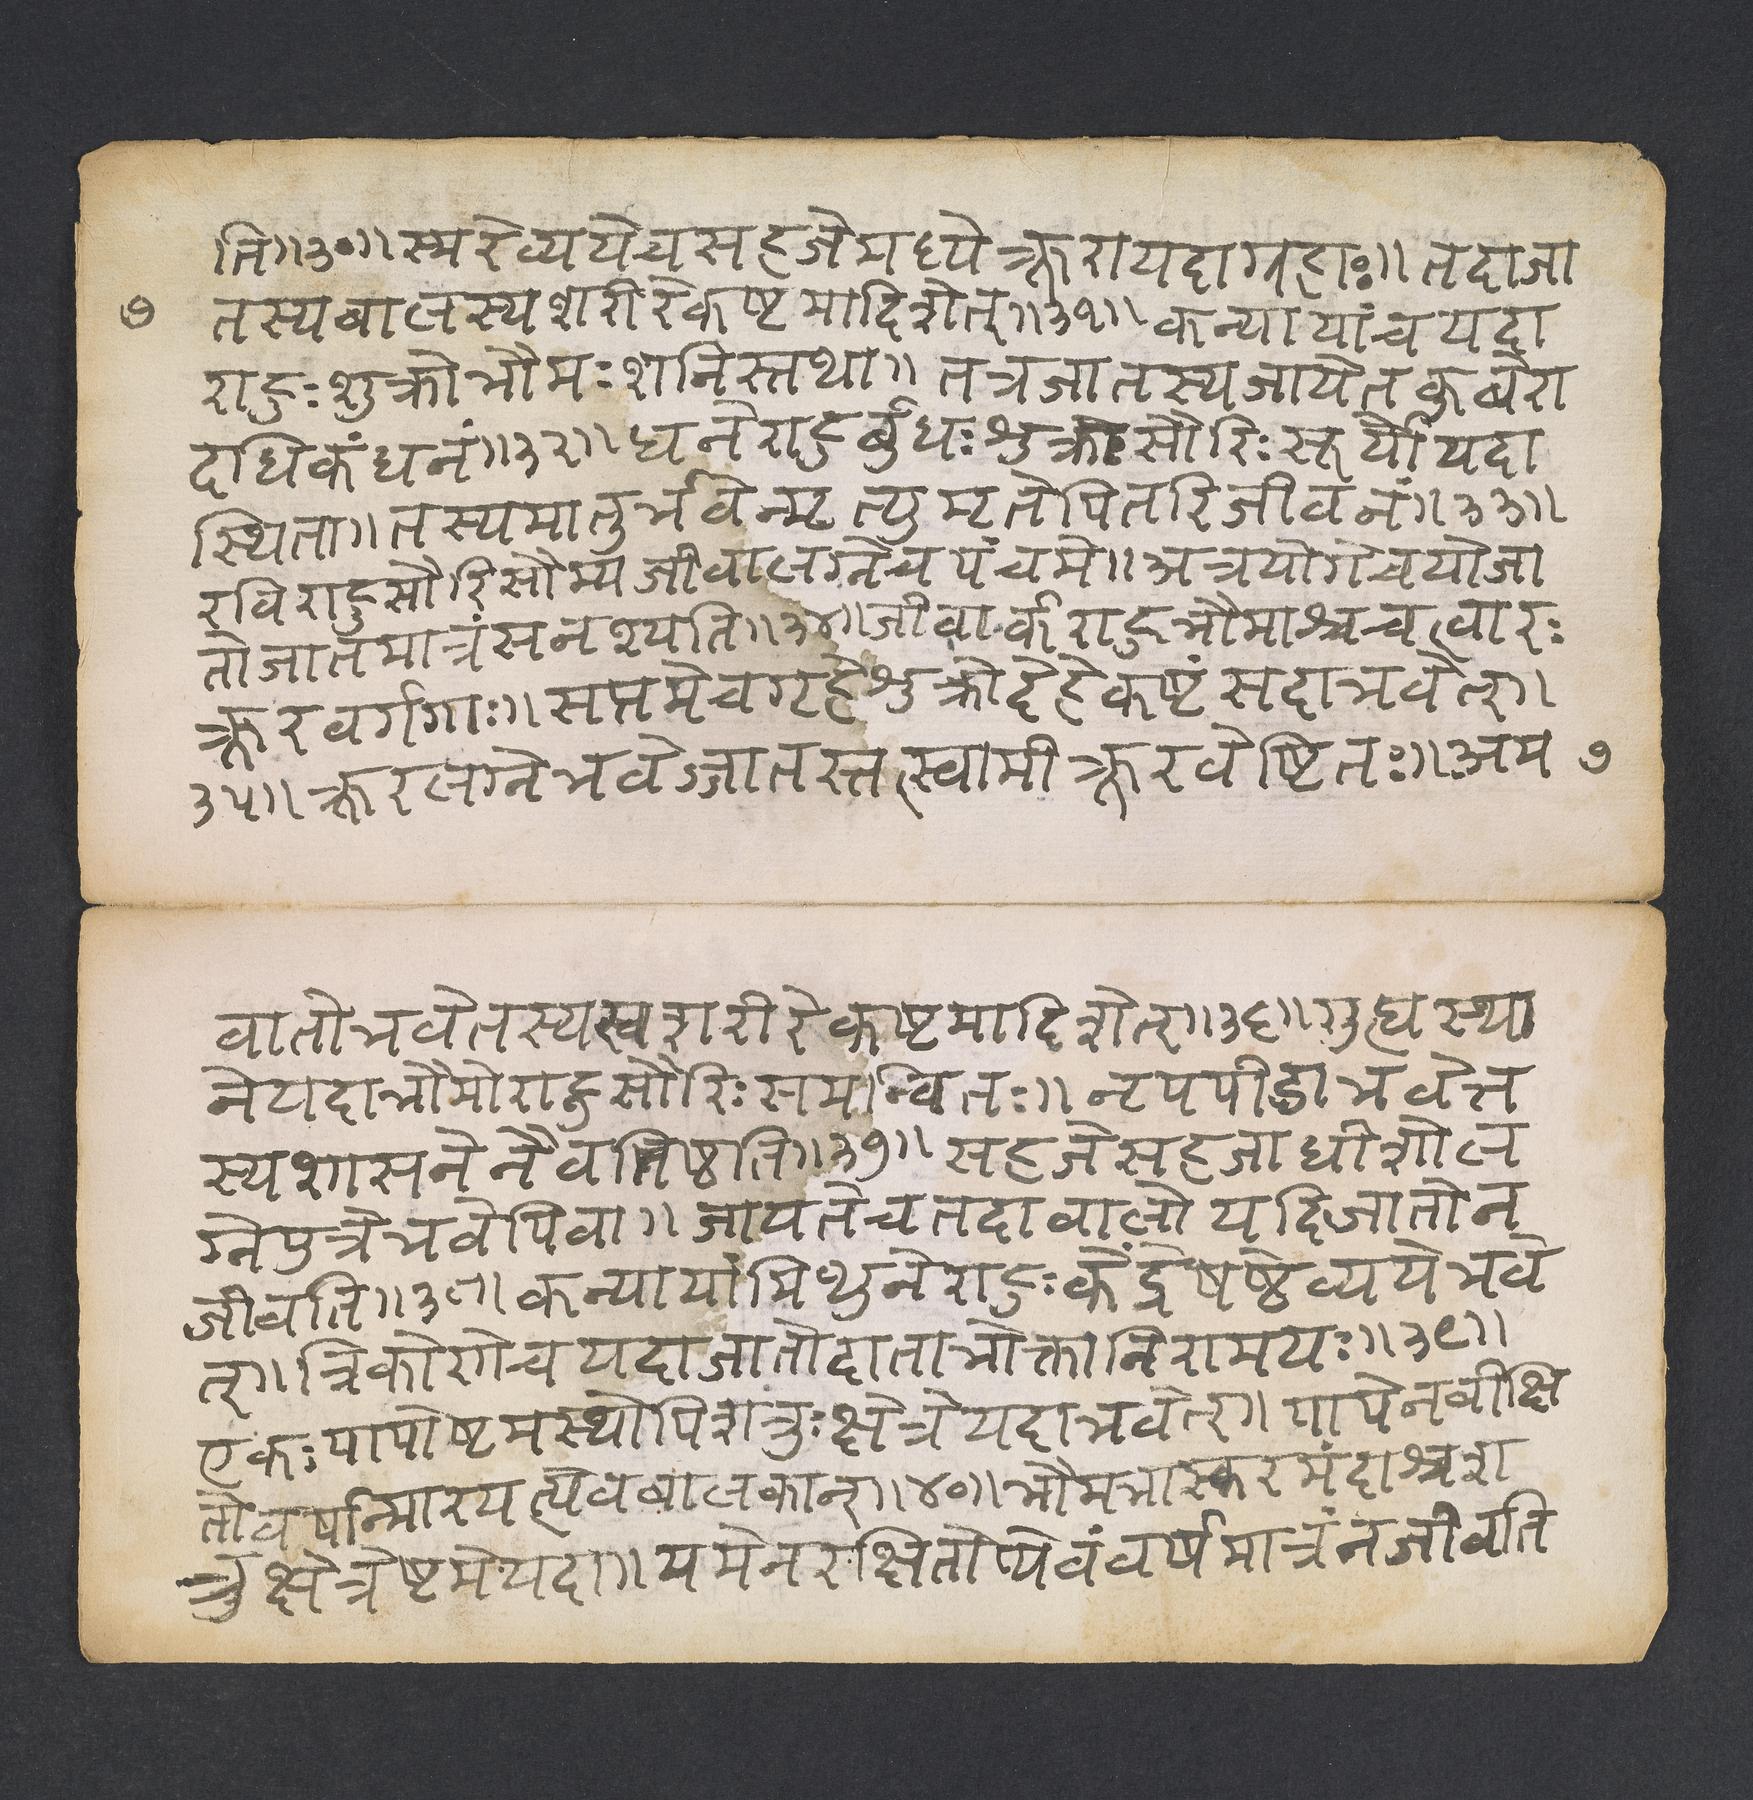 ति॥३०॥ स्मरेव्ययेचसहजेमध्येक्रूरायदाग्रहाः॥ तदाजा
७
तस्यबालस्यशरीरेकष्टमादिशेत्॥३१॥ कन्यायांचयदा
राहुःशुक्रोभौमःशनिस्तथा॥ तत्रजातस्यजायेतकुबेरा
दधिकंधनं॥३२॥ धनेराहुर्बुधःशुक्रःसौरिःसूर्योयदा
स्थिता॥ तस्यमातुर्भवेन्मृत्युमृतेपितरिजीवनं॥३३॥
रविराहुसौरिसौम्यजीवालग्नेचपंचमे॥ अत्रयोगेचयोजा
तोजातमात्रंसनश्यति॥३४॥ जीवार्कराहुभौमाश्चचत्वारः
क्रूरवर्गगाः॥ सप्तमेचगृहेशुक्रोदेहेकष्टंसदाभवेत्॥
३५॥ क्रूरलग्नेभवेज्जातस्तत्स्वामीक्रूरवेष्टितः॥ अय
७
वातोभवेतस्यस्वशरीरेकष्टमादिशेत्॥३६॥ गुह्यस्था
नेयदाभौमोराहुसौरिःसमन्वितः॥ नृपपीडाभवेत्त
स्यशासनेनैवतिष्ठति॥३७॥ सहजेसहजाधीशोल
ग्नेपुत्रेभवेपिवा॥ जायतेचतदावालोयदिजातोन
जीवति॥३८॥ कन्यायांमिथुनेराहुःकेंद्रेषष्ठेव्ययेभवे
त्॥ त्रिकोणेचयदाजातोदाताभोक्तानिरामयः॥३९॥
एकःपापोष्टमस्थोपिशत्रुःक्षेत्रेयदाभवेत्॥ पापेनवीक्षि
तोवर्षान्मारयत्येवबालकान्॥४०॥ भौमभास्करमंदाश्चश
त्रुक्षेत्रेष्टमेयदा॥ यमेनरक्षितोप्येवंवर्षमात्रंनजीवति